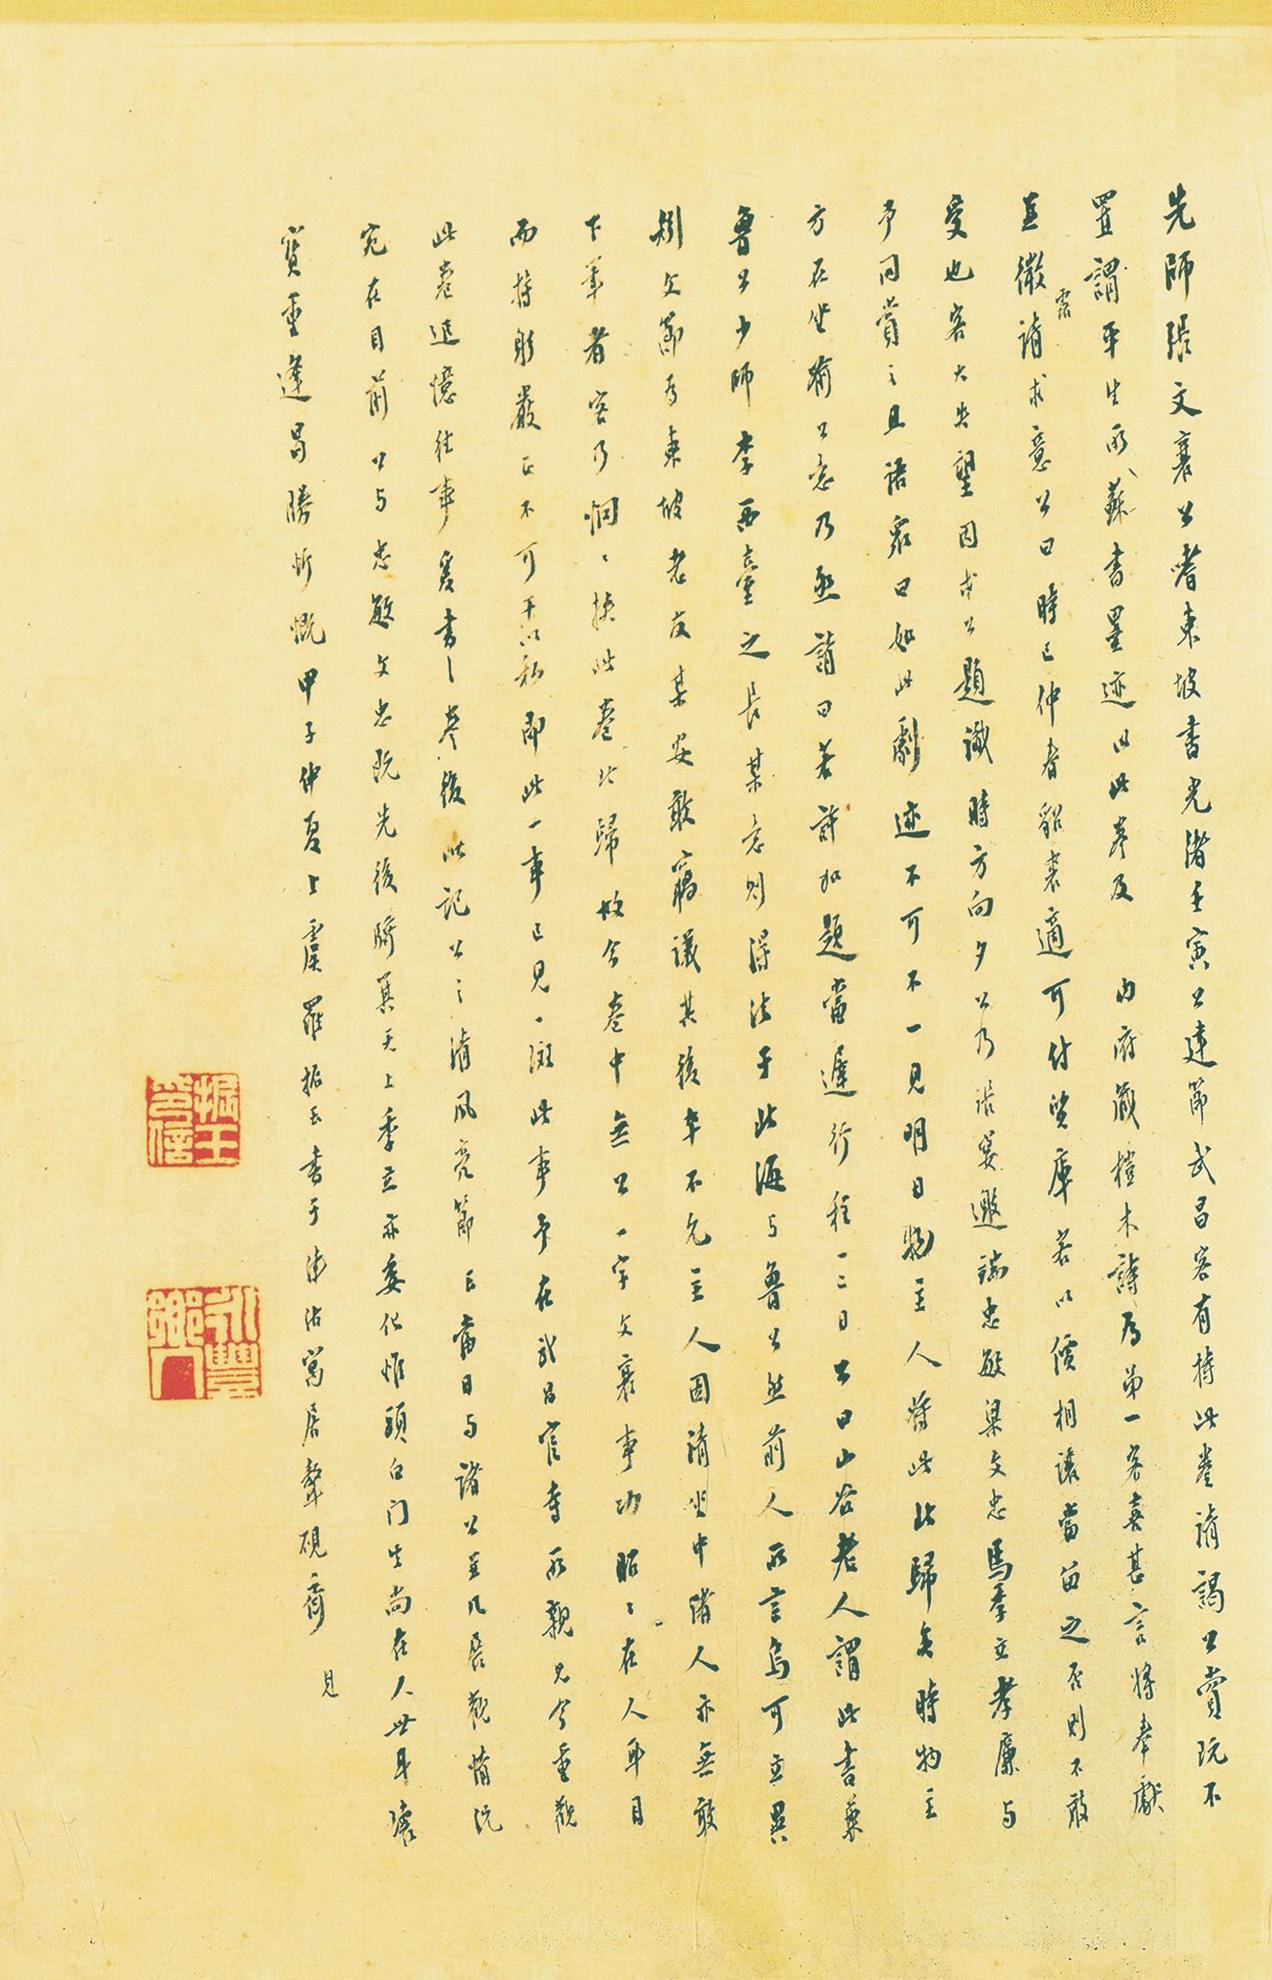 先師張文襄公嗜東坡書光緒壬寅公建節武昌客有持此卷請謁公賞玩不
置謂平生所見蘇書墨迹以此卷及 内府藏榿木詩為第一客喜甚言將奉獻
且微露請求意公曰時已仲春貂裘適可付質庫若以價相讓當留之否則不敢
受也客大失望因求公題識時方向夕公乃張宴邀端忠敏梁文忠馬季立孝廉与
予同賞之且語衆曰如此劇迹不可不一見明日物主人將此北歸矣時物主
方在坐喻公意乃亟請曰若許加題當遲行程一二日公曰山谷老人謂此書兼
魯公少師李西臺之長某意則得法于北海与魯公然前人所言烏可立異
矧文節為東坡老友某安敢竊議其後卒不允主人固請坐中諸人亦無敢
下筆者客乃惘惘挾此卷北歸故今卷中無公一字文襄事功昭昭在人耳目
而持躬嚴正不可干以私即此一事已見一斑此事予在武昌官寺所親見今重觀
此卷追憶往事爰書之卷後以記公之清風亮節且當日与諸公並几展觀情況
宛在目前公与忠敏文忠既先後騎箕天上季立亦委化惟頭白门生尚在人世耳瓌
寶重逢曷勝忻慨甲子仲夏上虞羅振玉書于津沽寓居聱硯齋
見
振玉印信
永豐鄉人